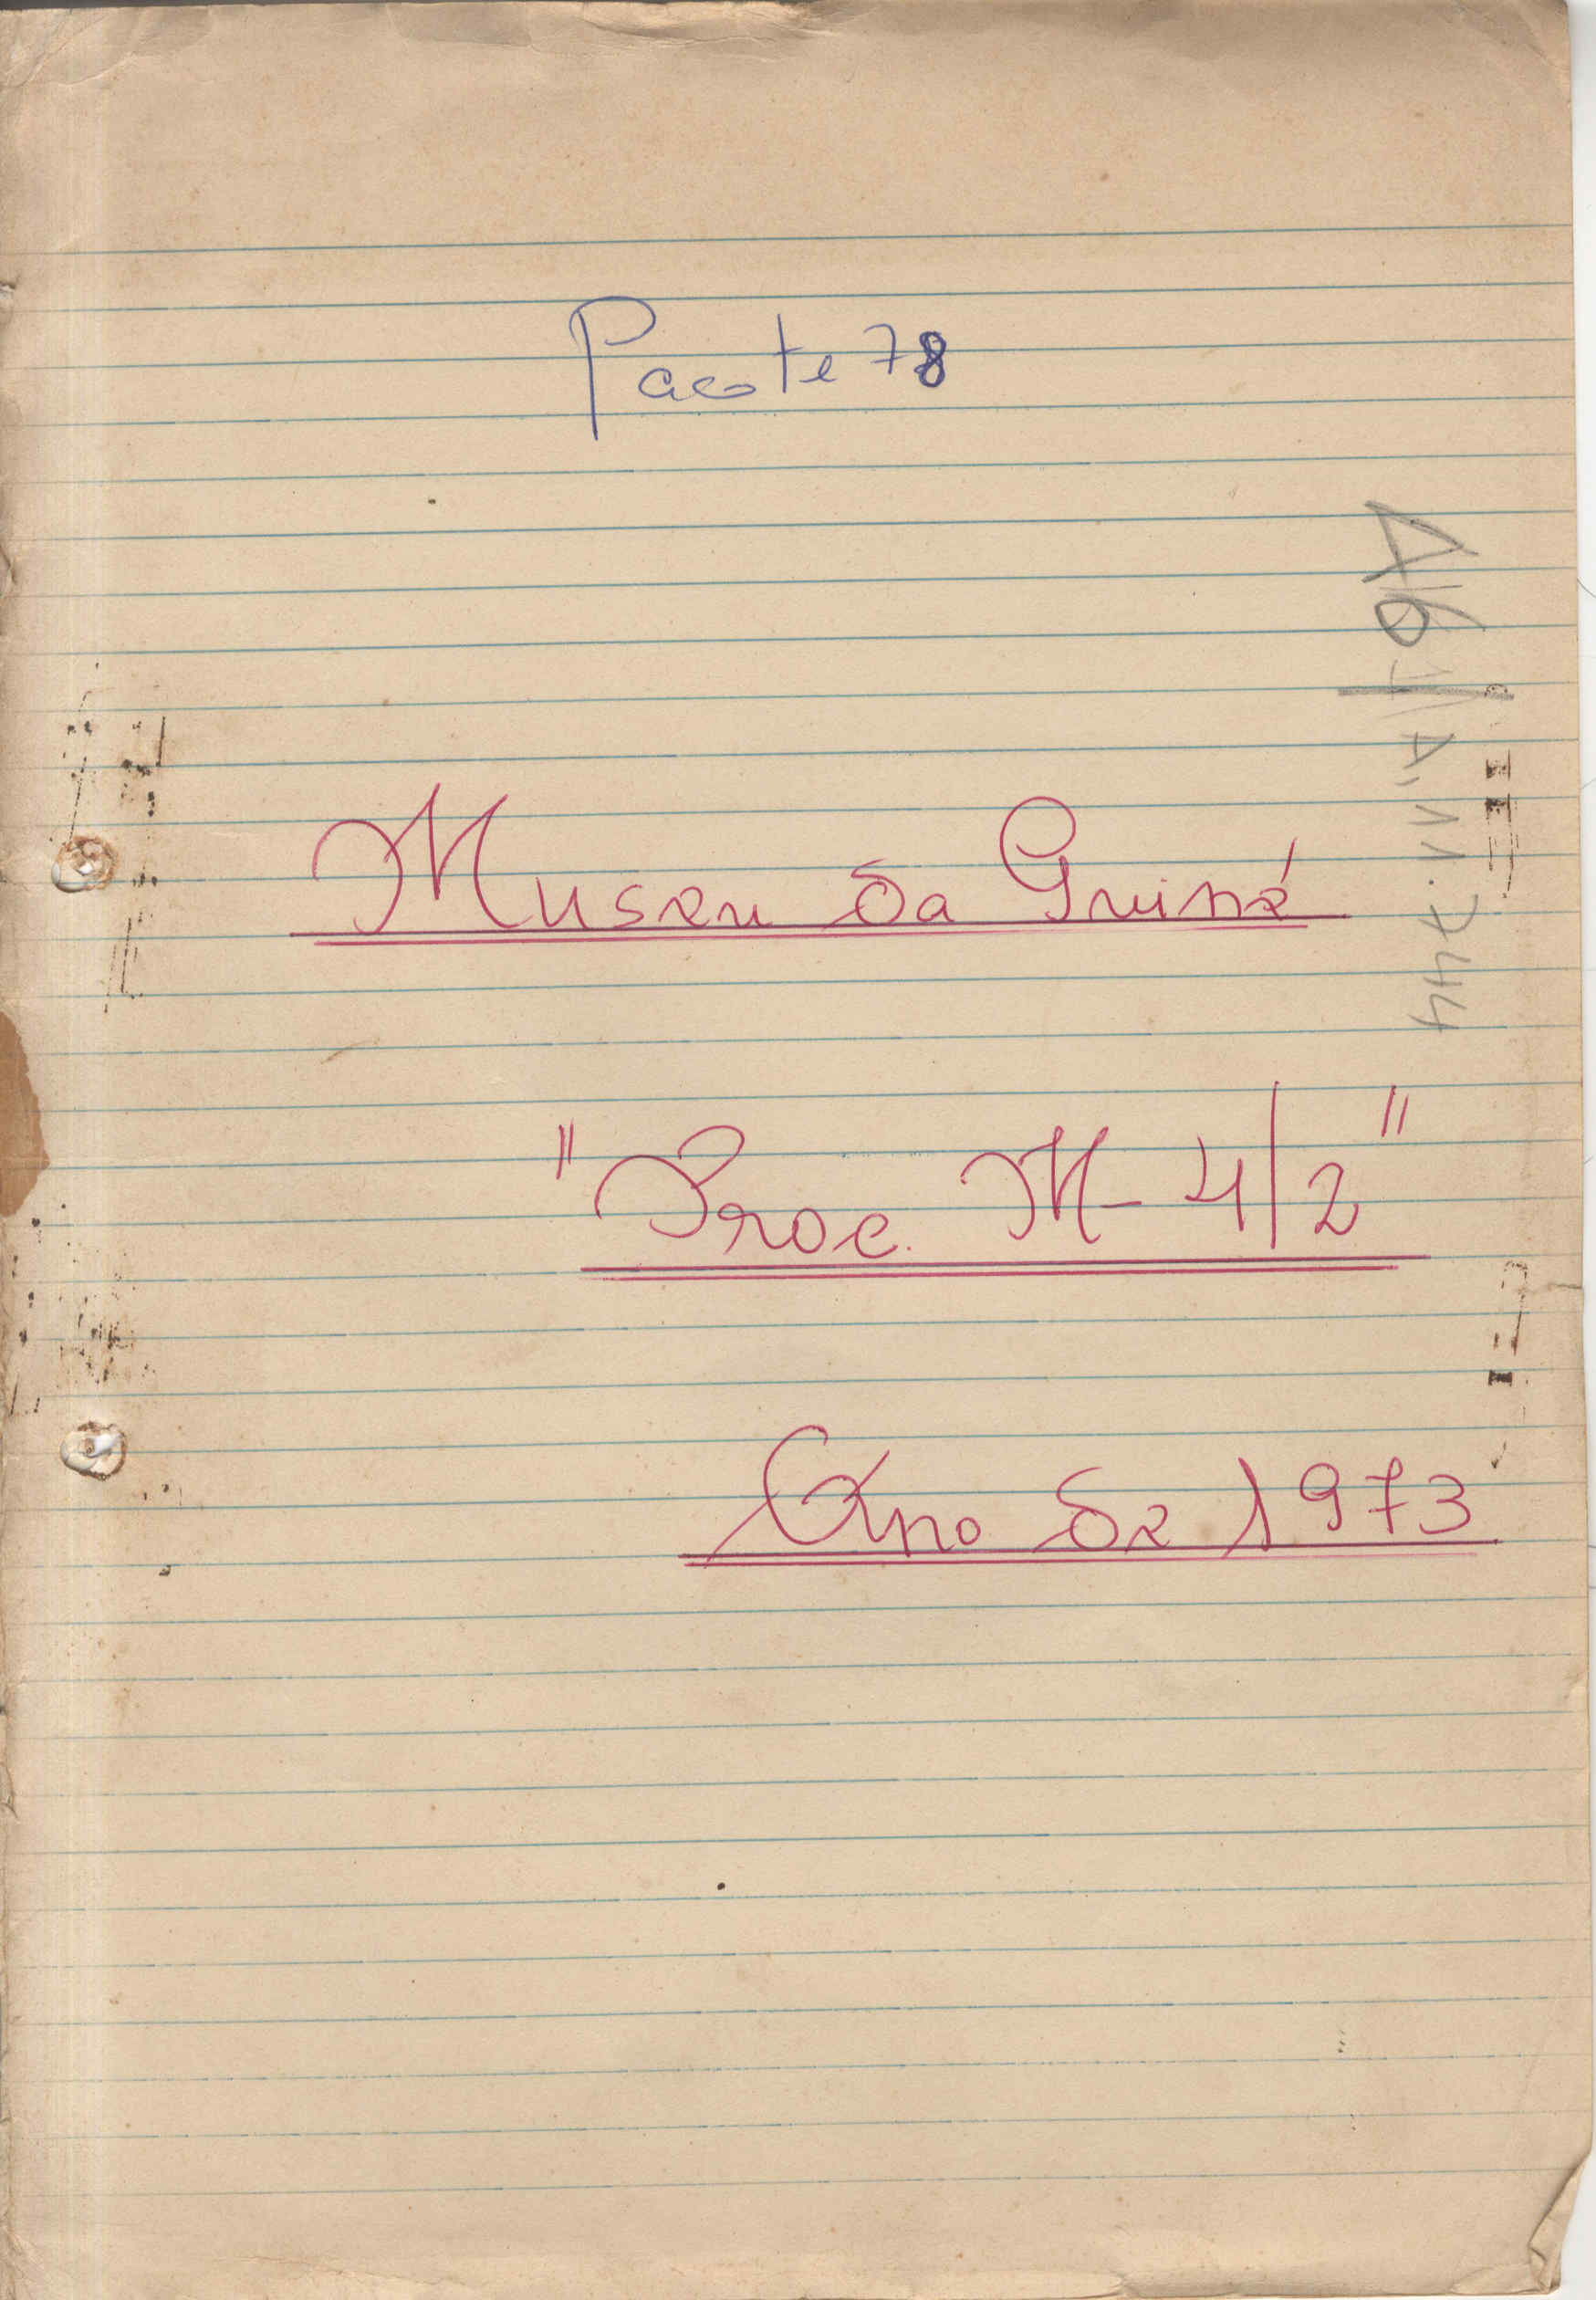 Pacote 78
Museu da Guiné
"Proc. M-4/2"
Ano de 1973
A, 11.744